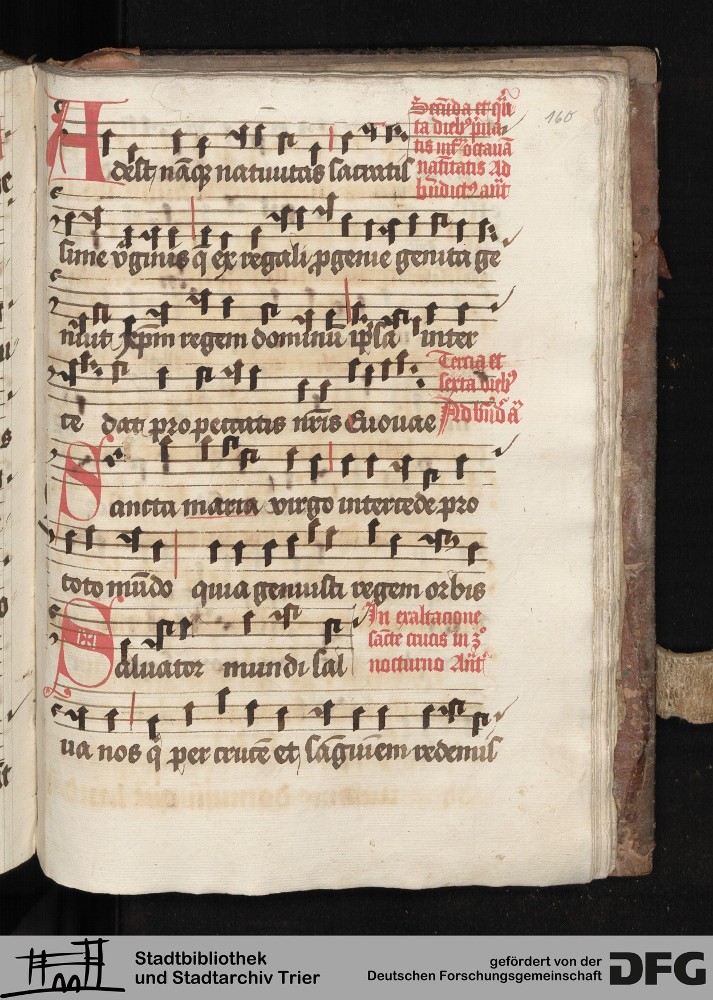 Secu̅da et qui̅
ta dieb⁹ priua
tis inf᷑ octaua̅
natitatis Ad
bn̅dict⁹ an̅t
160
Adest na̅q̨ natiuitas sacratis
sime v̅ginis q̅ ex regali ꝓgenie genita ge
nuit regem dominu̅ ip̅sa̅ inter
Tercia et
sexta dieb⁹
te dat pro peccatis nr̅is Euouae
Sancta maria virgo intercede pro
toto mu̅do quia genuisti regem orbis
In exaltacione
sancte crucis in 3°
nocturno An̅t
Saluator mundi sal
ua nos q̅ per cruce̅ et sa̅guinem redemis
Stadtbibliothek
und Stadtarchiv Trier
gefördert von der
Deutschen Forschungsgemeinschaft
DFG